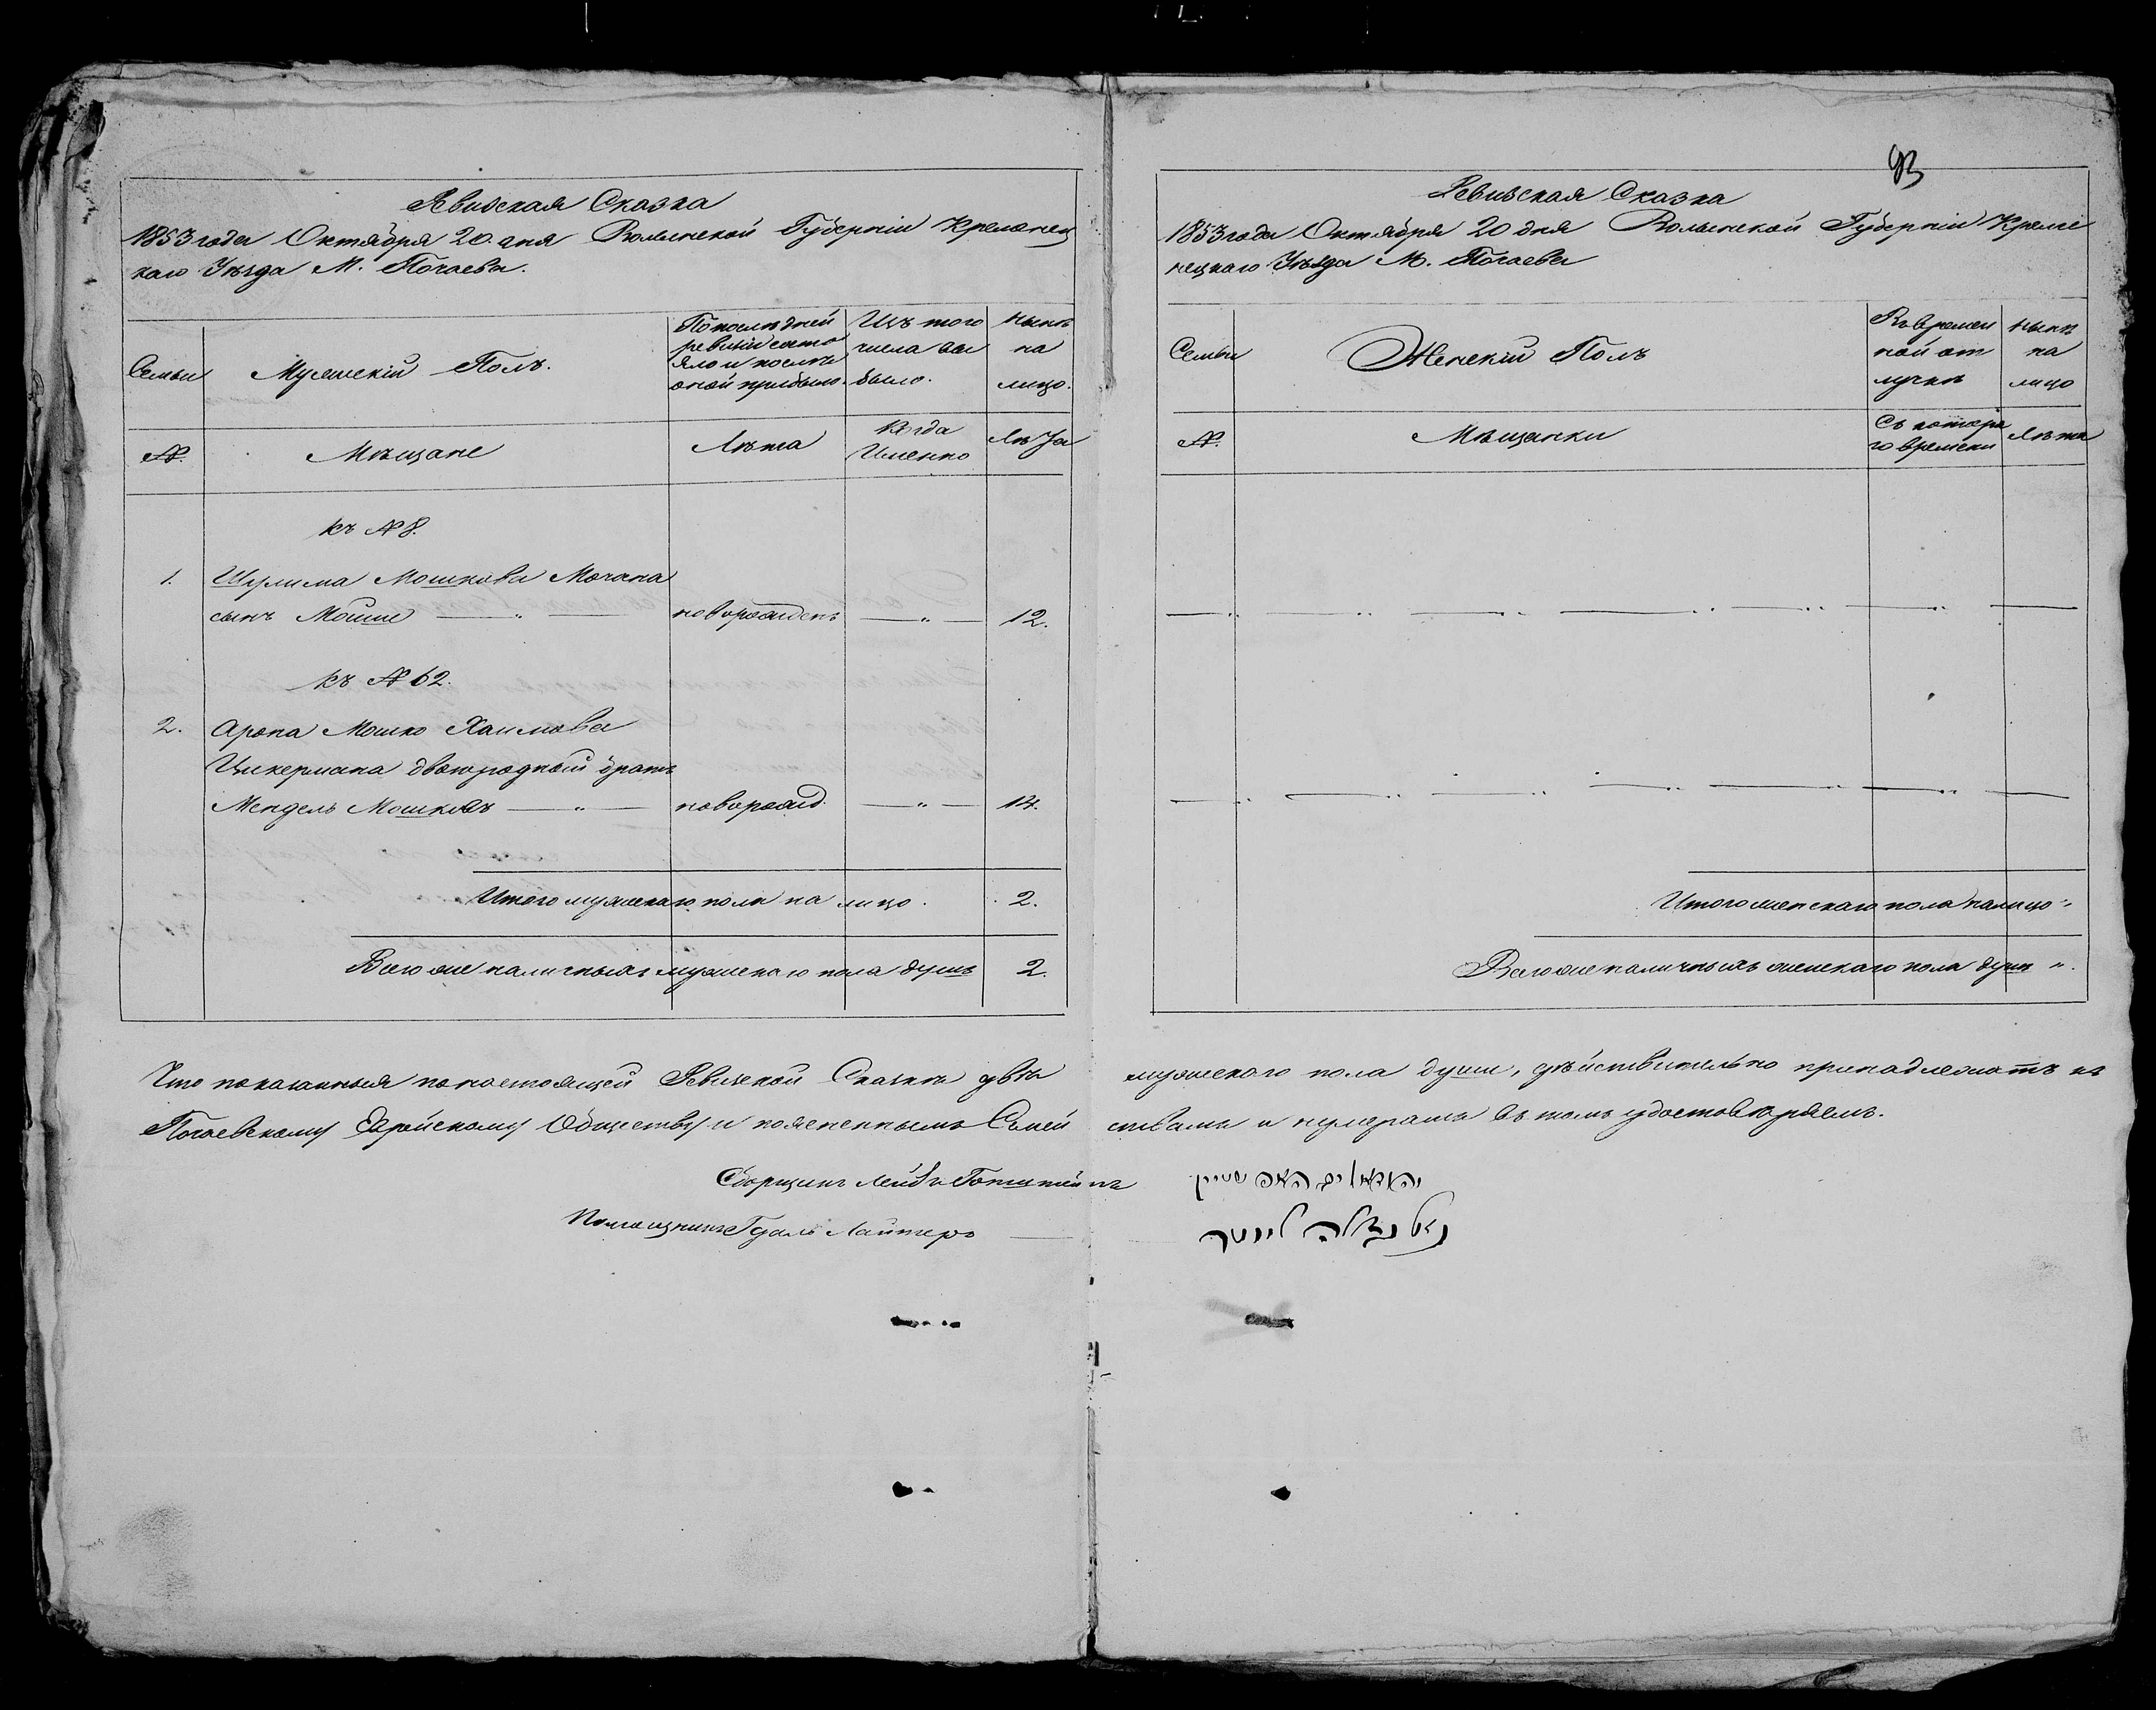 Ревизская Сказка
1853 года Октября 20. дня Волынской Губерніи Кременец
каго Уѣзда М. Почаева.
Семьи
Мужескій Полъ.
По послѣдней
ревизіи состо
яло и послѣ
оной прибыло.
Изъ того
числа вы
было.
Нынѣ
на
лицо.
№.
Мѣщане
Лѣта
Когда
Именно
Лѣта
къ № 8.
1. Шулима Мошкова Мочана
сынъ Мошие — " — новорожденъ — " — 12.
къ № 62.
2. Арона Мошко Хаимова
Цикермана двоюродный братъ
Мендель Мошковъ — " — новорожд. — " — 14.
Итого мужескаго пола на лицо. 2.
Всего же наличныхъ мужескаго пола душъ 2.
93
Ревизская Сказка
1853 года Октября 20 дня Волынской Губерніи Креме
нецкаго Уѣзда М. Почаева
Семьи
Женскій Полъ
Въ времен
ной от
лучкѣ
Нынѣ
на
лицо
№.
Мѣщанки
Съ котора
го времени
Лѣта
Итого женскаго пола налицо "
Всего же наличныхъ женскаго пола душъ ".
Что показанныя по настоящей Ревизской Сказкѣ двѣ мужескаго пола души, дѣйствительно принадлежатъ къ
Почаевскому Еврейскому Обществу и поясненнымъ Семей ствамъ и нумерамъ въ томъ удостовѣряемъ.
Сборщикъ Лейбъ Гопштейнъ
Помощникъ Гдаль Лайтеръ
גדליה לייטר